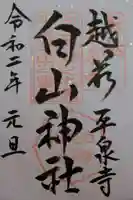 越前 平泉寺
白山神社
令和二年 元旦